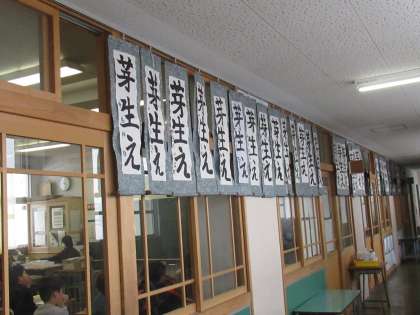 芽生え
芽生え
芽生え
芽生え
芽生え
芽生え
芽生え
芽生え
芽生え
芽生え